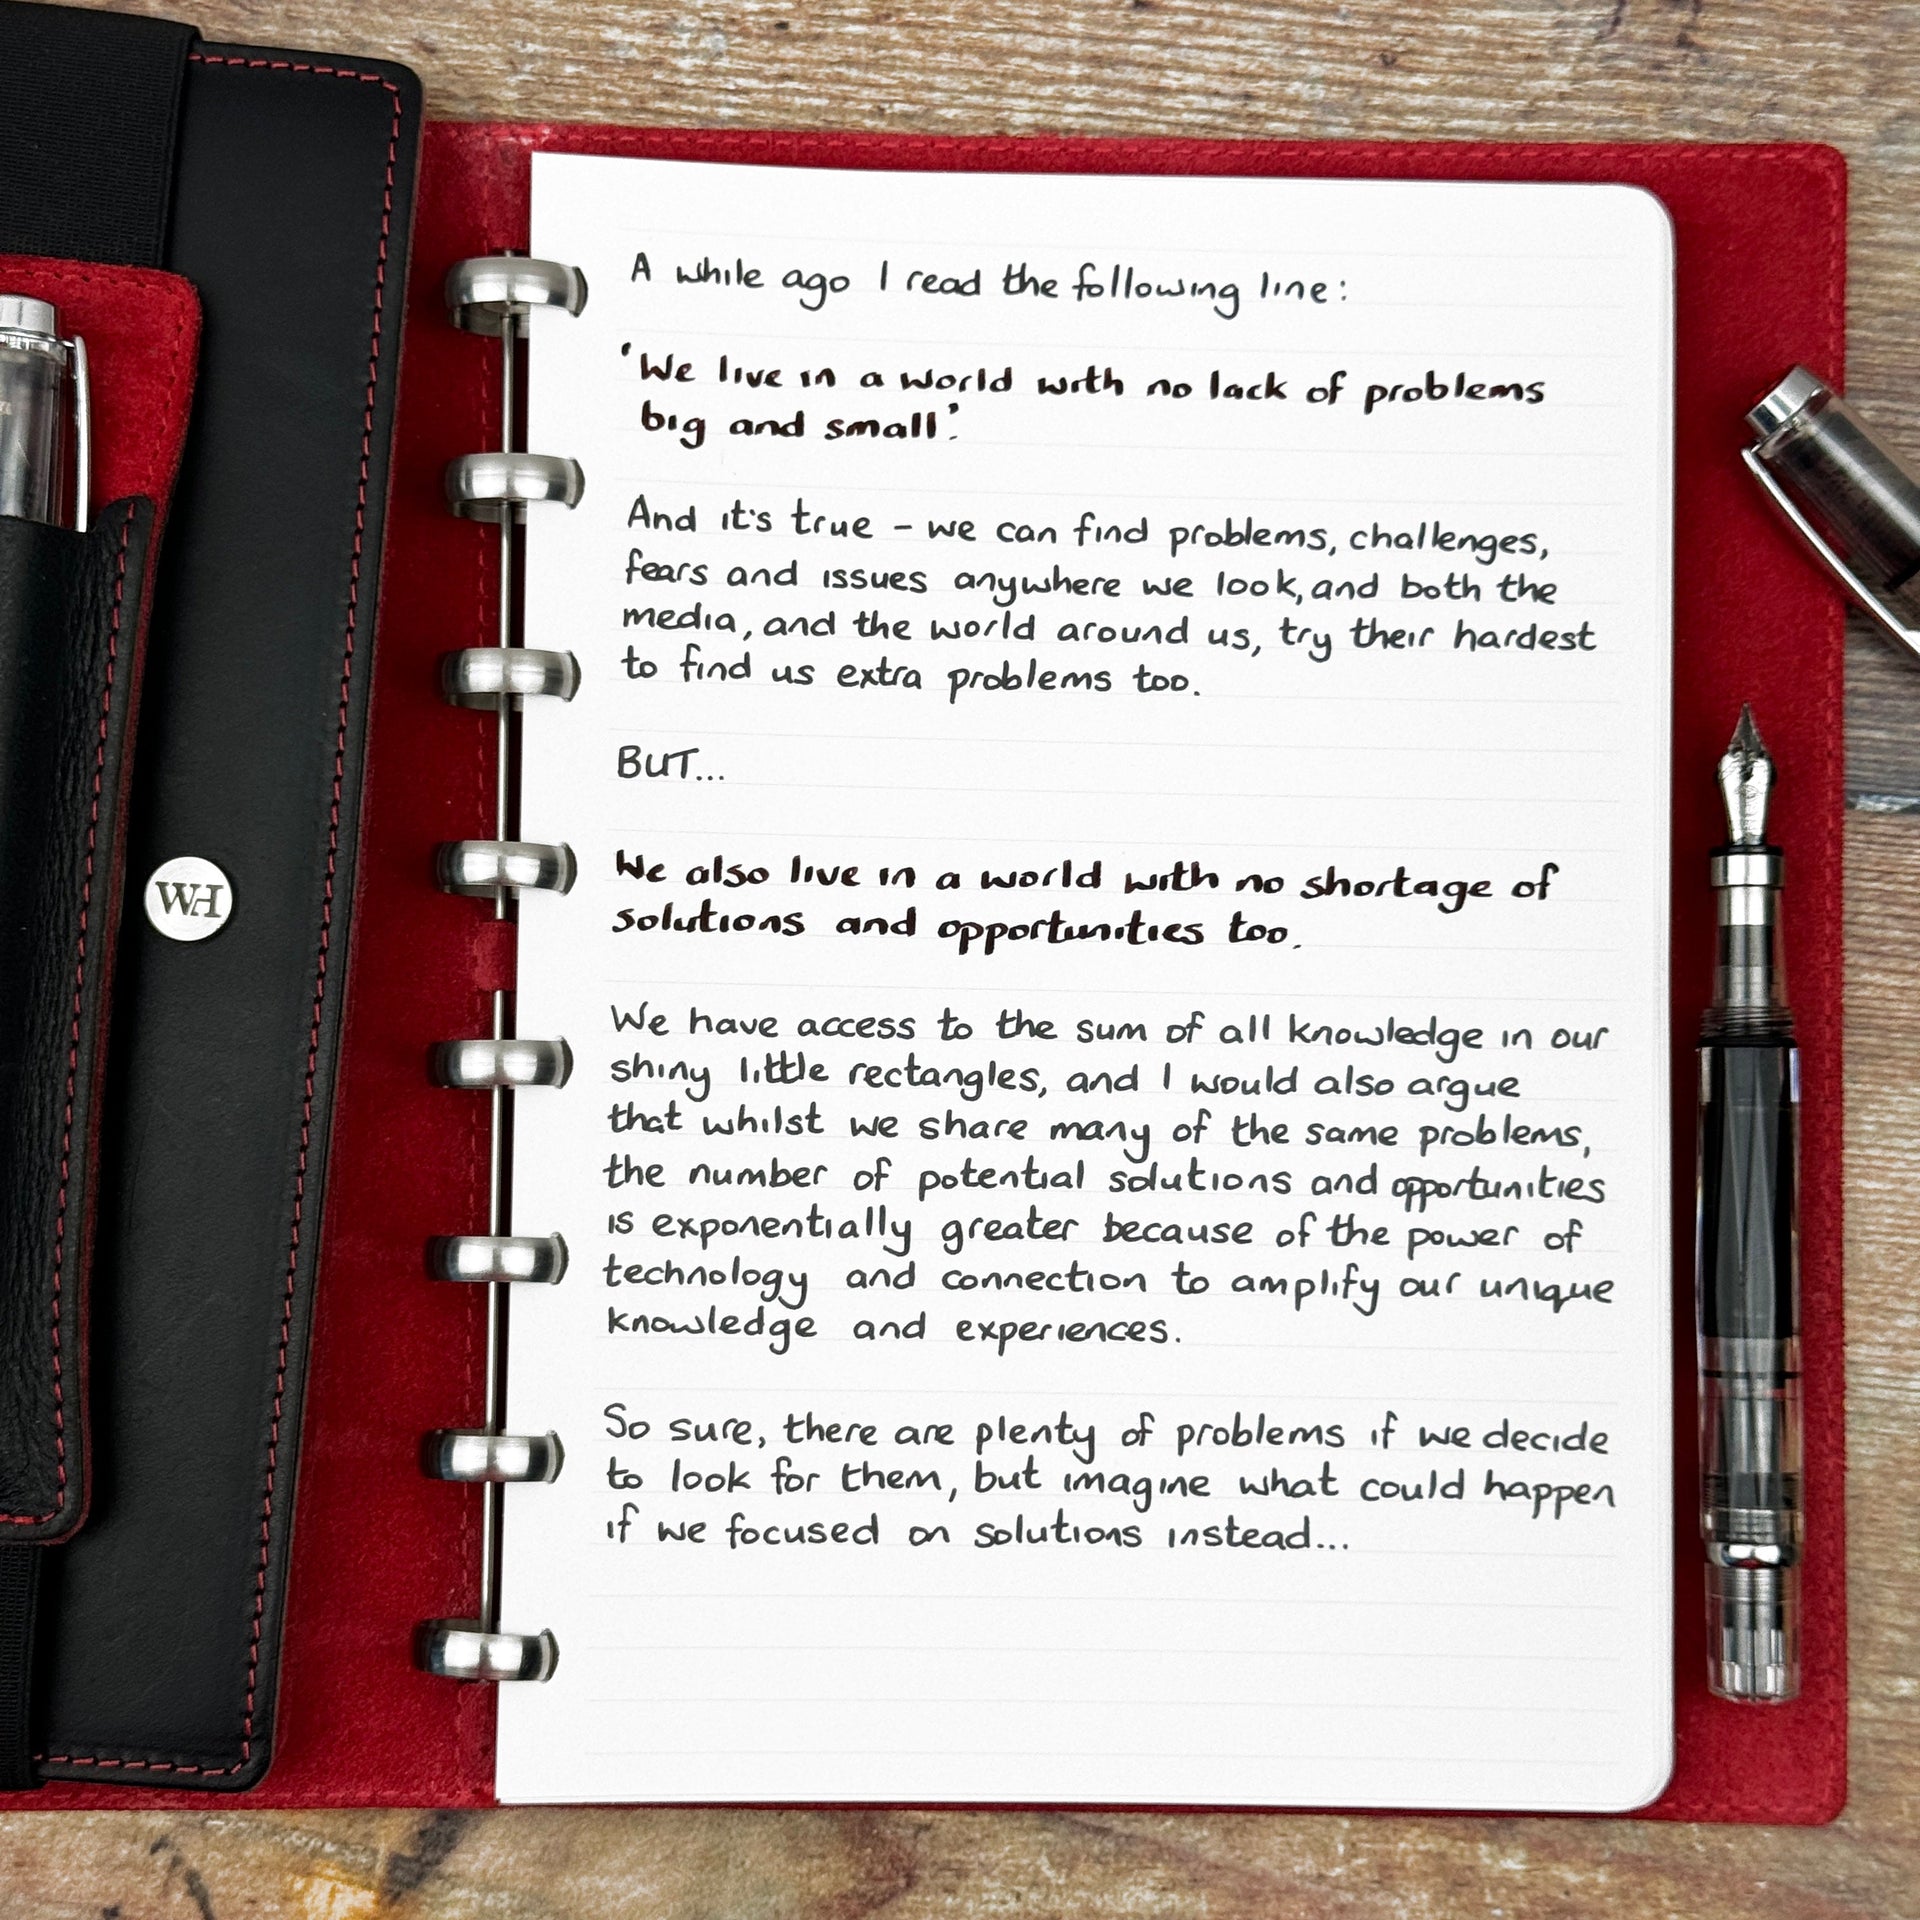 A while ago I read the following line:
'We live in a world with no lack of problems
big and small'.
And it's true - we can find problems, challenges,
fears and issues anywhere we look, and both the
media, and the world around us, try their hardest
to find us extra problems too.
BUT...
We also live in a world with no shortage of
solutions and opportunities too.
We have access to the sum of all knowledge in our
shiny little rectangles, and I would also argue
that whilst we share many of the same problems,
the number of potential solutions and opportunities
is exponentially greater because of the power of
technology and connection to amplify our unique
knowledge and experiences.
So sure, there are plenty of problems if we decide
to look for them, but imagine what could happen
if we focused on solutions instead...
WH